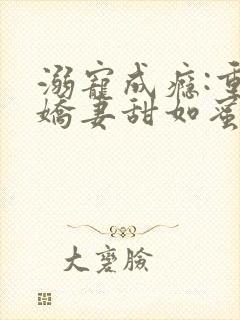 溺寵成癮:重
嬌妻甜如蜜
大寶臉